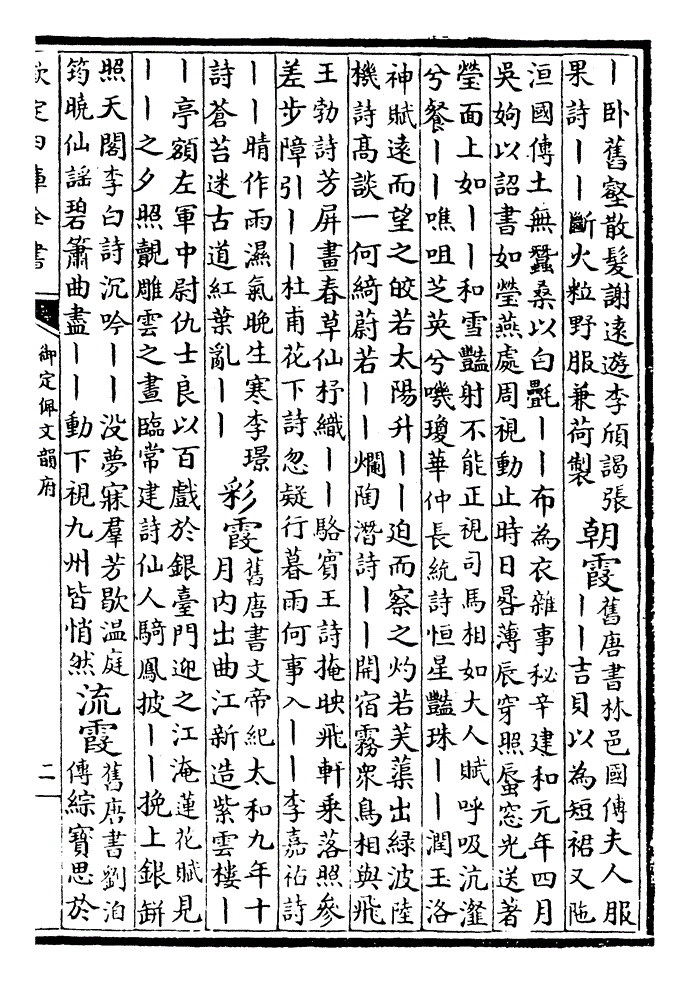 ｜卧舊壑散髮謝遠遊李頎謁張
果詩｜｜斷火粒野服兼荷製
朝霞
舊唐書林邑國傳夫人服
｜｜吉貝以為短裙又陁
洹國傳土無蠶桑以白㲲｜｜布為衣雜事秘辛建和元年四月
吳姁以詔書如瑩燕處周視動止時日晷薄辰穿照蜃窓光送著
瑩面上如｜｜和雪豔射不能正視司馬相如大人賦呼吸沆瀣
兮餐｜｜噍咀芝英兮嘰瓊華仲長統詩恒星豔珠｜｜潤玉洛
神賦遠而望之皎若太陽升｜｜迫而察之灼若芙蕖出緑波陸
機詩髙談一何綺蔚若｜｜爛陶潛詩｜｜開宿霧衆鳥相與飛
王勃詩芳屏畫春草仙杼織｜｜駱賓王詩掩映飛軒乗落照參
差步障引｜｜杜甫花下詩忽疑行暮雨何事入｜｜李嘉祐詩
｜｜晴作雨濕氣晚生寒李璟
詩蒼苔迷古道紅葉亂｜｜
彩霞
舊唐書文帝紀太和九年十
月内出曲江新造紫雲樓｜
｜亭額左軍中尉仇士良以百戲於銀臺門迎之江淹蓮花賦見
｜｜之夕照覿雕雲之晝臨常建詩仙人騎鳳披｜｜挽上銀缾
照天閣李白詩沉吟｜｜沒夢寐羣芳歇温庭
筠曉仙謡碧簫曲盡｜｜動下視九州皆悄然
流霞
舊唐書劉洎
傳綜寶思於
欽定四庫全書
御定佩文韻府
二